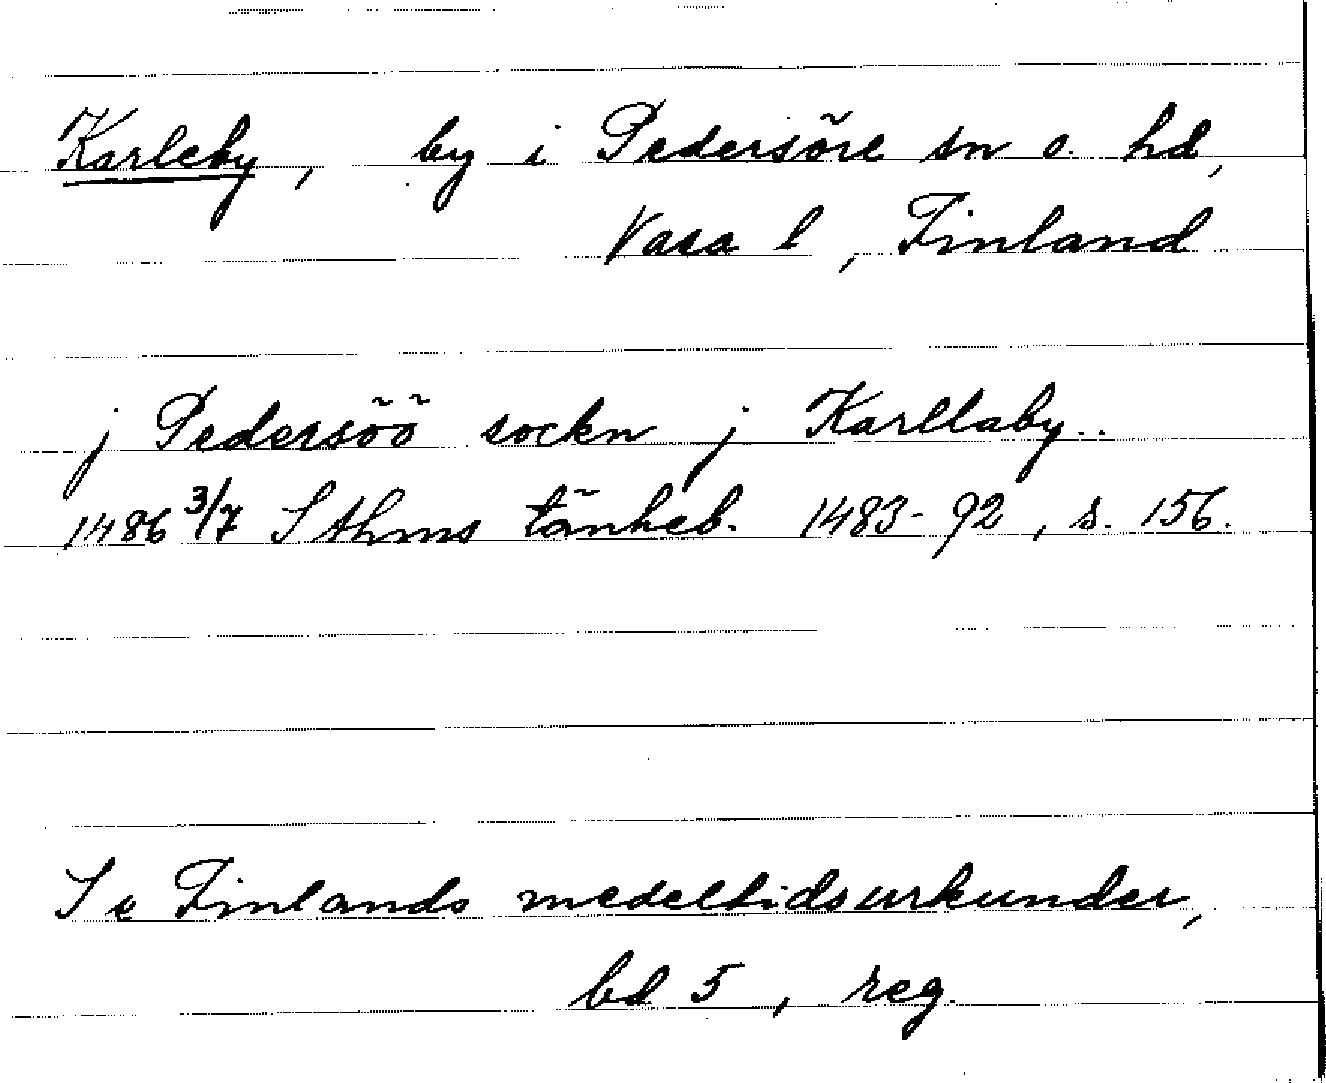 Karleby, by i Pedersöre sn o. hd,
Vasa l, Finland
j Pedersöö sockn j Karllaby..
1486 3/7 Sthms tänkeb. 1483-92, s. 156.
Se Finlands medeltidsurkunder,
bd 5, reg.